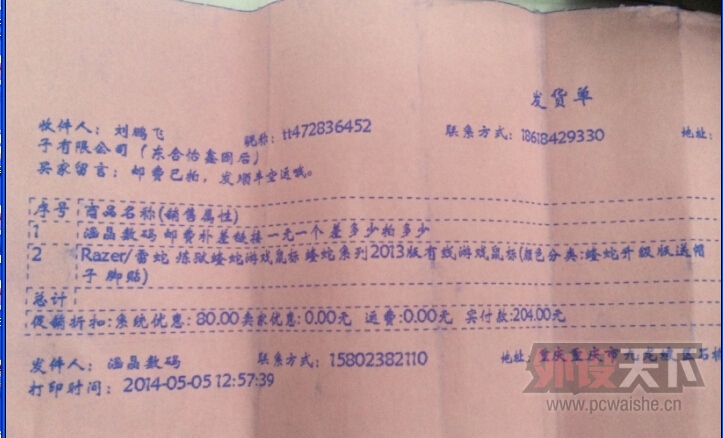 发货单
收件人：刘鹏飞 昵称：tt472836452 联系方式：18618429330 地址：
子有限公司（东合怡鑫园后）
买家留言：邮费已拍，发顺丰空运哦。
序号 商品名称(销售属性)
1 涵晶数码 邮费补差链接一元一个 差多少拍多少
2 Razer/雷蛇 炼狱蝰蛇游戏鼠标 蝰蛇系列2013版有线游戏鼠标(颜色分类:蝰蛇升级版送帽
子 脚贴)
总计
促销折扣:系统优惠：80.00卖家优惠：0.00元 运费：0.00元 实付款：204.00元
发件人：涵晶数码 联系方式：15802382110 地址：重庆重庆市九龙坡区石桥
打印时间：2014-05-05 12:57:39
外设天下
www.pcwaishe.cn